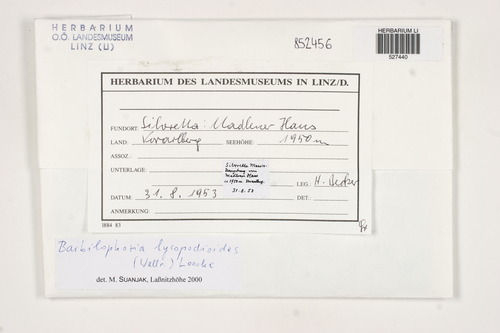 HERBARIUM
O.Ö. LANDESMUSEUM
LINZ (LI)
852456
HERBARIUM LI
527440
HERBARIUM DES LANDESMUSEUMS IN LINZ/D.
FUNDORT: Silvretta: Madlener Haus
LAND: Vorarlberg SEEHÖHE: 1950 m
ASSOZ.:
UNTERLAGE:
Silvretta Massiv:
Umgebung von
Madlener Haus
31.8.53
LEG.: H. Becker
DATUM: 31. 8. 1953 DET.:
ANMERKUNG:
I884 83
Barbilophozia lycopodioides
(Wallr.) Loeske
det. M. SUANJAK, Laßnitzhöhe 2000